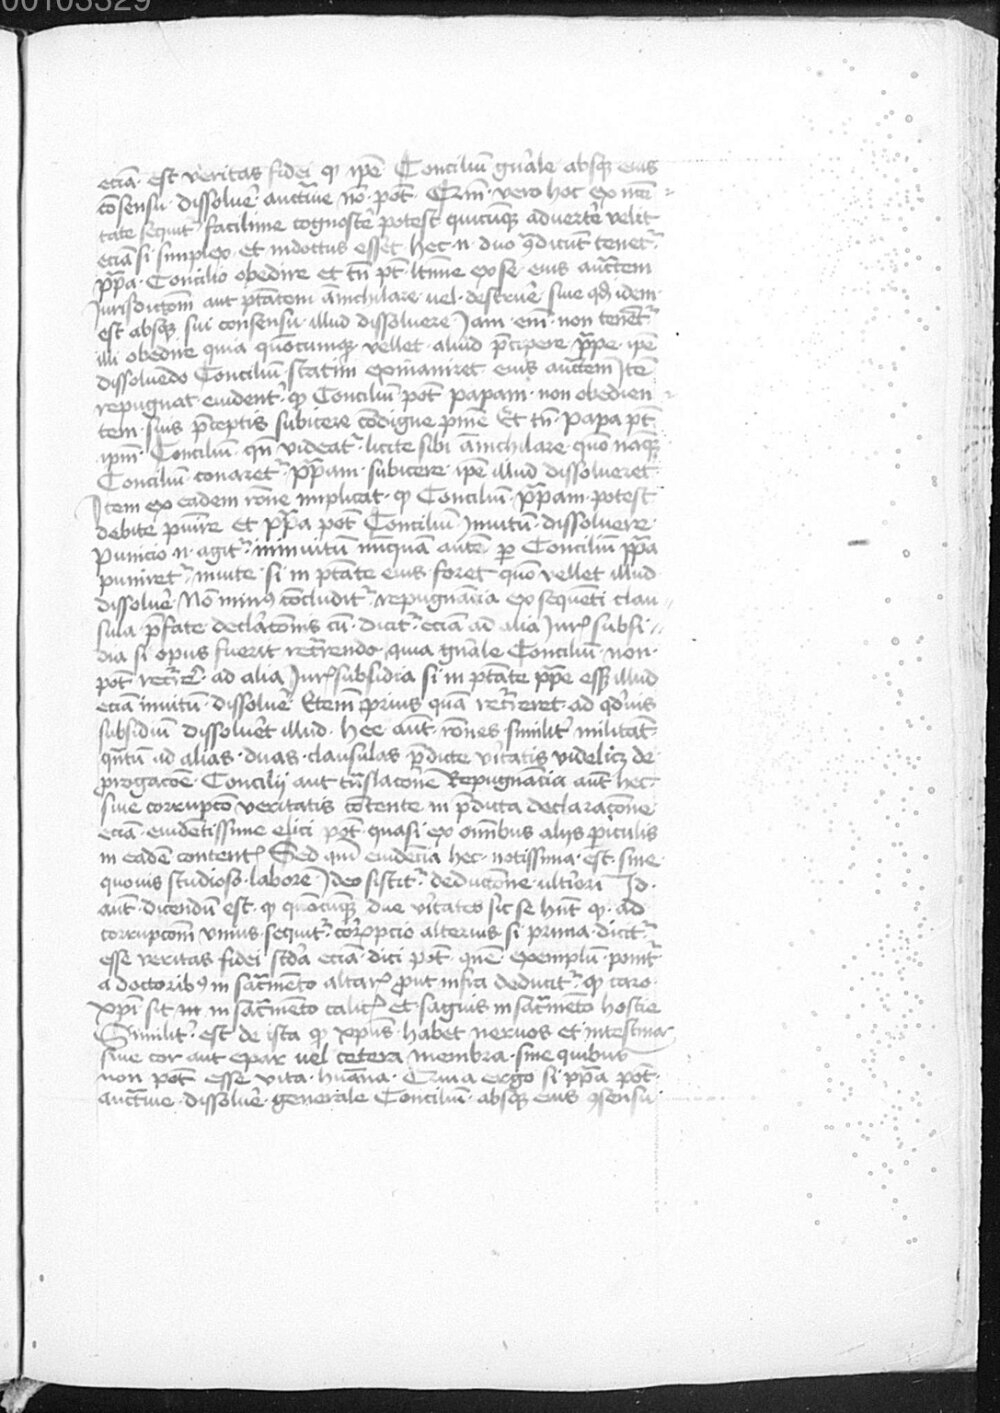 00103329
eciā est veritas fidei ꝙ ip̄e Conciliū gn̄ale absqꝫ eius
cōsensu dissolue᷑ auctīue nō pōt Qm̄ vero hoc ex nc̄e
tate sequit᷑ facilime cognosce᷑ potest quicūqꝫ adverte᷑ velit
eciā si simplex et indoctus esset hec n̄ duo ꝯdicūt tenet᷑
pp̄a Concilio obedire et tn̄ pt̄ ltīme ex se eius auctem
Jurisdictōm aut ptātem ānichilare vel destrue᷑ siue qd̄ idem
est absqꝫ sui consensu illud dissoluere Jam em̄ non tenet᷑
illi obedire quia quōcumqꝫ vellet aliud p̄cipere pp̄e ip̄e
dissoluēdo Conciliū statim exinaniret eius auctem Itē
repugnat euident᷑ ꝙ Conciliū pōt papam non obedien
tem suis p̄ceptis subicere condigne pīne Et tn̄ Papa pt̄
ip̄m Conciliū qn̄ videat᷑ licite sibi ānichilare quō naqꝫ
Conciliū conaret᷑ pp̄am subicere ip̄e illud dissolueret
Item ex eadem rōne implicat ꝙ Conciliū pp̄am potest
debite punire et pp̄a pōt Conciliū Inuitū dissoluere
Punicio n̄ agit᷑ in inuitū nūquā autē per Conciliū pp̄a
puniret᷑ inuite si in ptāte eius foret quō vellet illud
dissolue᷑ Nō minꝰ cōcludit᷑ repugnācia ex sequēti clau
sula p̄fate declarac̄onis cū dicit᷑ eciā ad alia Jur̄ subsi
dia si opus fuerit recurrendo quia gn̄ale Conciliū non
pōt recur̄re᷑ ad alia Jur̄ subsidia si in ptāte pp̄e esset illud
eciā inuitū dissolue᷑ Etem̄ prius quā recurreret ad qd̄uis
subsidiū dissolue᷑t illud hec aūt rōnes similit᷑ militāt
qn̄tū ad alias duas clausulas p̄dicte v̄itatis videlicꝫ de
prorogacōe Concilij aut trn̄slacōne Repugnācia aūt hec
siue corrupcō veritatis cōtente in p̄dicta declaracōne
eciā euidētissime elici pōt quasi ex om̄ibus alijs p̄iculis
in eadē content᷑ Sed qm̄ euidēcia hec notissima est sine
quouis studioso labore Ideo sistit᷑ deductōne ult᷑iori Id
aūt dicendū est ꝙ quōcūqꝫ due v̄itates sic se hn̄t ꝙ ad
corrupcōm vnius sequit᷑ corrupcio alterius si prima dicit᷑
esse veritas fidei scd̄a eciā dici pōt que exemplū ponit᷑
a doctoribꝰ in sacramēto altar᷑ prout infra deducit᷑ ꝙ caro
xpī sit in sacramēto calic᷑ et saguis in sacramēto hostie
Similit᷑ est de ista ꝙ xpūs habet neruos et intestina
siue cor aut epar vel cetera membra sine quibus
non pōt esse vita huāna Quia ergo si pp̄a pōt
auctīue dissolue᷑ generale Conciliū absqꝫ eius ꝯsensu